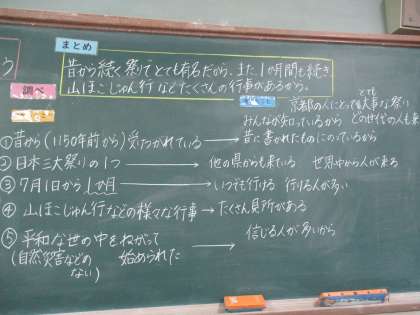 まとめ
昔から続く祭りでとても有名だから、また、1か月間も続き
山ほこじゅん行などたくさんの行事があるから。
う
調べ
京都の人にとってとても大事な祭り
みんなが知っているから どの世代の人も来
①昔から(1150年前から)受けつがれている→昔に書かれたものにのっているから
②日本三大祭りの1つ→他の県からも来ている 世界中から人が来る
③7月1日から1か月→いつでも行ける 行ける人が多い
④山ほこじゅん行などの様々な行事→たくさん見所がある
⑤平和な世の中をねがって→信じる人が多いから
(自然災害などの 始められた
ない)